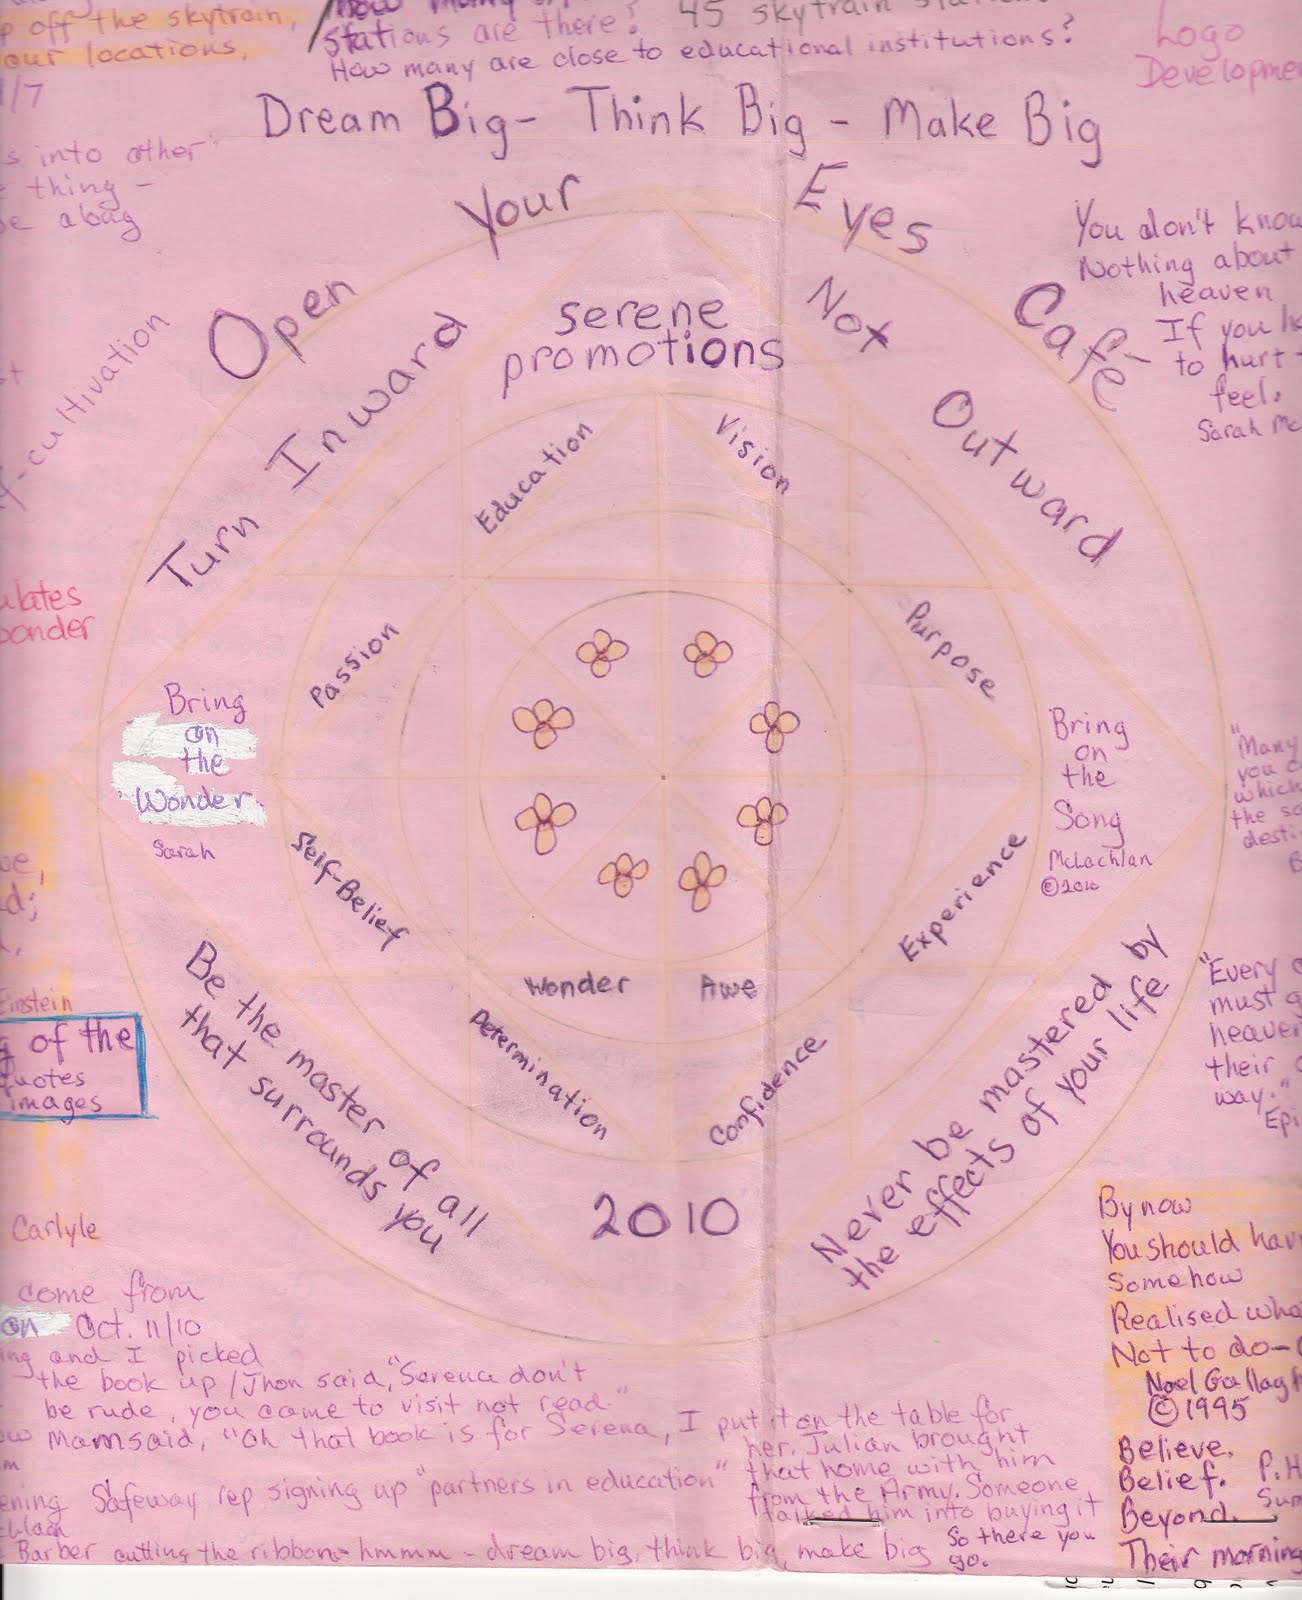 off the skytrain,
our locations,
/7
Stations are there? 45 skytrain
How many are close to educational institutions?
Logo
Dream Big- Think Big - Make Big
s into other
thing -
abag
Open Your Eyes Café
Turn Inward Not Outward
serene
promotions
You don't
Nothing about
heaven
If you
to hurt
feel.
Sarah
-cultivation
Education
Vision
Passion
Purpose
Bring
on
the
Wonder
Sarah
Bring
on
the
Song
McLachlan
©2010
"Many
you
which
the
Self-Belief
Experience
Wonder Awe
Determination
Confidence
Einstein
of the
quotes
images
"Every
must
their
way."
Be the master of all
that surrounds you
Never be mastered by
the effects of your life
2010
Carlyle
come from
on Oct. 11/10
and I picked
the book up / Jhon said, "Serena don't
be rude, you came to visit not read."
Mam said, "Oh that book is for Serena, I put it on the table for
her. Julian brought
that home with him
from the Army. Someone
talked him into buying it
So there you
go.
Safeway rep signing up "partners in education"
Barber cutting the ribbons- hmmm - dream big, think big, make big
By now
You should
Somehow
Realised
Not to do-
Noel
©1995
Believe.
Belief.
Beyond.
Their